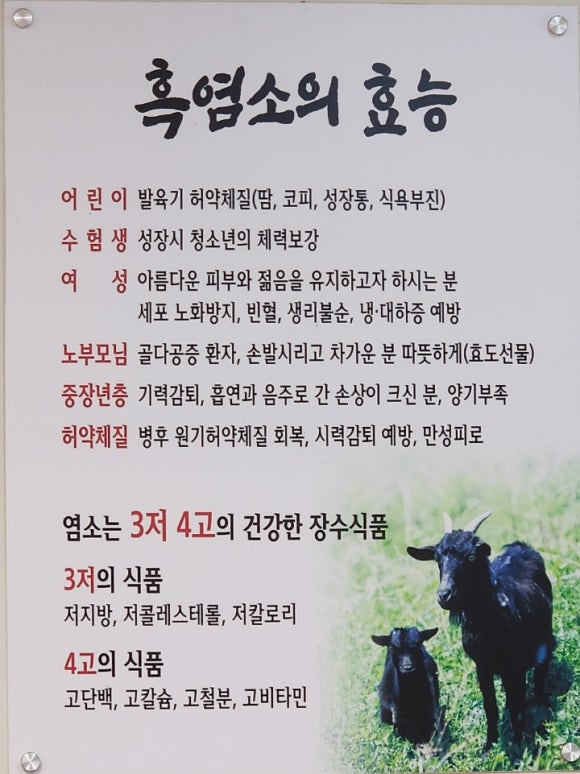 흑염소의 효능
어린이 발육기 허약체질(땀, 코피, 성장통, 식욕부진)
수험생 성장시 청소년의 체력보강
여 성 아름다운 피부와 젊음을 유지하고자 하시는 분
세포 노화방지, 빈혈, 생리불순, 냉·대하증 예방
노부모님 골다공증 환자, 손발시리고 차가운 분 따뜻하게(효도선물)
중장년층 기력감퇴, 흡연과 음주로 간 손상이 크신 분, 양기부족
허약체질 병후 원기허약체질 회복, 시력감퇴 예방, 만성피로
염소는 3저 4고의 건강한 장수식품
3저의 식품
저지방, 저콜레스테롤, 저칼로리
4고의 식품
고단백, 고칼슘, 고철분, 고비타민